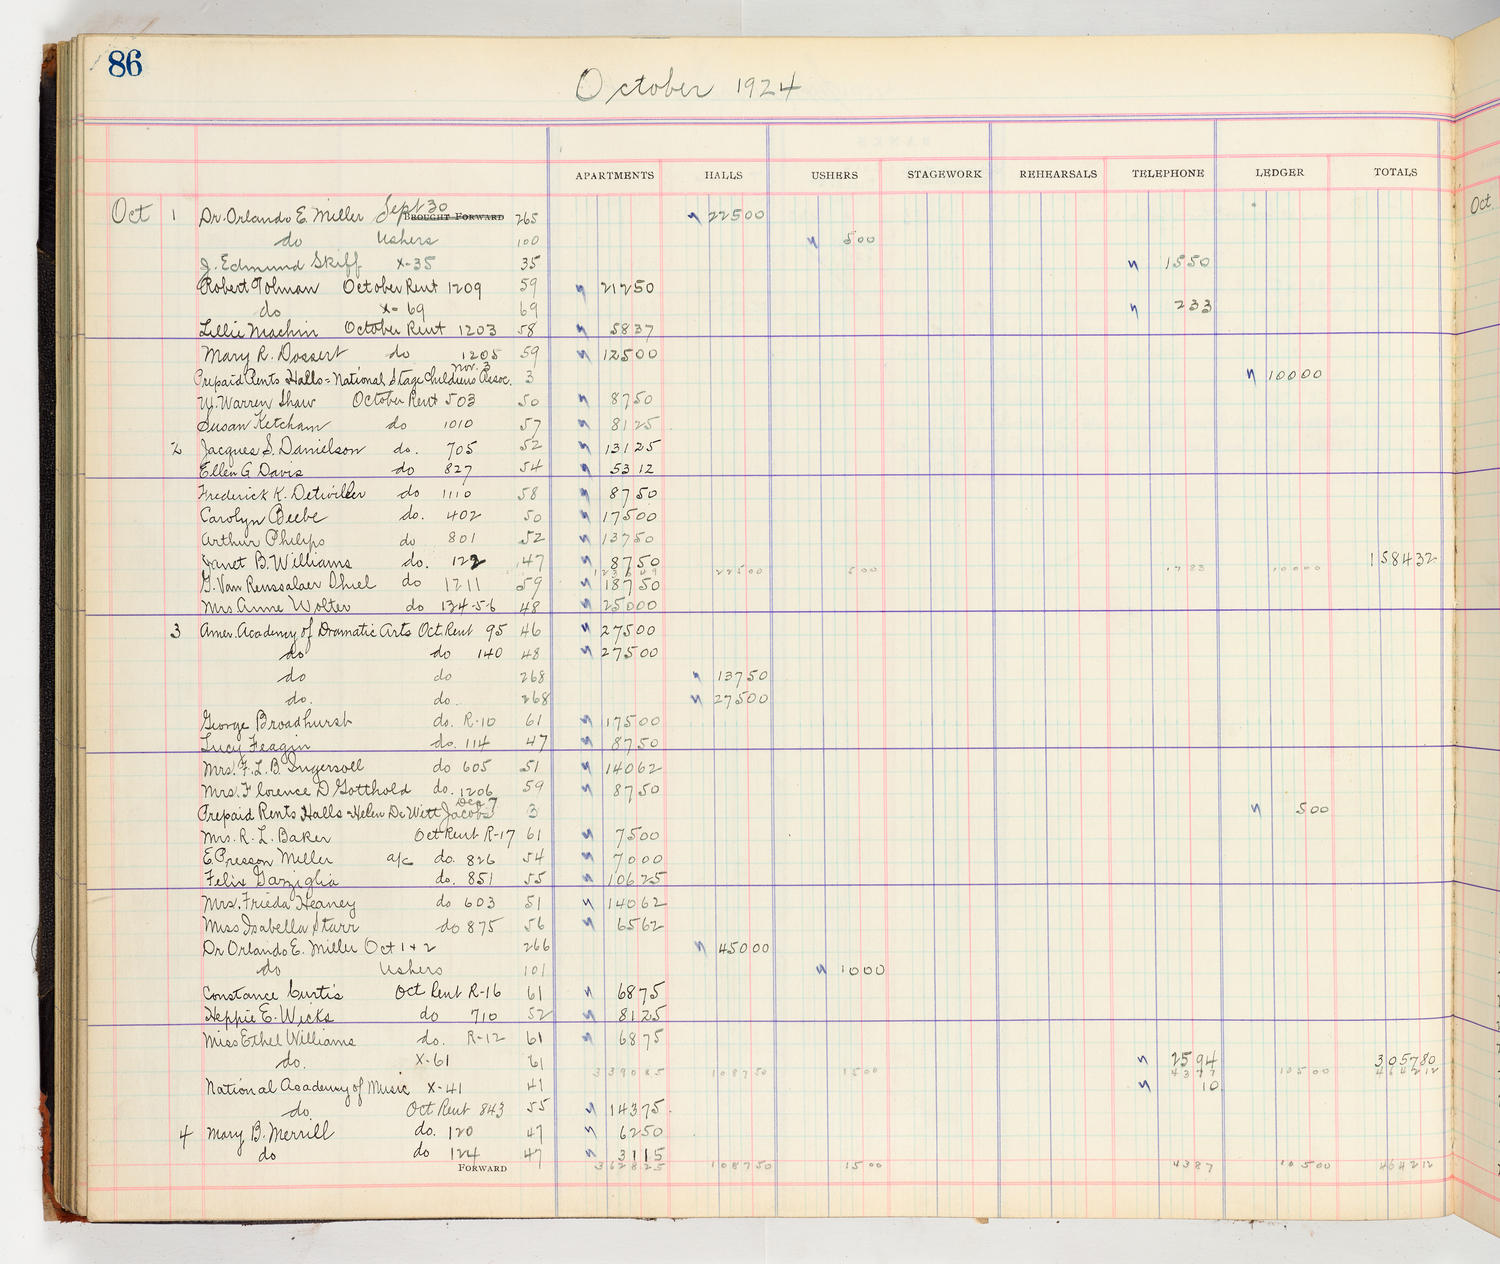 86
October 1924
APARTMENTS HALLS USHERS STAGEWORK REHEARSALS TELEPHONE LEDGER TOTALS
Oct 1 Dr. Orlando E. Miller Sept 30 BROUGHT FORWARD 265 22500
do Ushers 100 500
J. Edmund Skiff X-35 35 1550
Robert Tolman October Rent 1209 59 21250
do X-69 69 233
Lillie Machin October Rent 1203 58 5837
Mary R. Dossert do 1205 59 12500
Prepaid Rents Halls = National Stage Childrens Assoc. Nov. 3 3 10000
W. Warren Shaw October Rent 503 50 8750
Susan Ketcham do 1010 57 8125
2 Jacques S. Danielson do. 705 52 13125
Ellen G Davis do 827 54 5312
Frederick K. Detwiller do 1110 58 8750
Carolyn Beebe do. 402 50 17500
Arthur Philips do 801 52 13750
Janet B. Williams do. 122 47 8750 158432
22500 500 1783 10000
G. Van Renssalaer Dhiel do 1211 59 18750
Mrs Anne Wolter do 134-56 48 25000
3 Amer. Academy of Dramatic Arts Oct Rent 95 46 27500
do do 140 48 27500
do do 268 13750
do. do. 268 27500
George Broadhurst do. R-10 61 17500
Lucy Feagin do. 114 47 8750
Mrs. F. L. B. Ingersoll do 605 51 14062
Mrs. Florence D Gotthold do. 1206 59 8750
Prepaid Rents Halls = Helen De Witt Jacobs Dec 7 3 500
Mrs. R. L. Baker Oct Rent R-17 61 7500
E. Presson Miller a/c do. 826 54 7000
Felix Garziglia do. 851 55 10625
Mrs. Frieda Heaney do 603 51 14062
Miss Isabella Starr do 875 56 6562
Dr Orlando E. Miller Oct 1 + 2 266 45000
do Ushers 101 1000
Constance Curtis Oct Rent R-16 61 6875
Heppie E. Wicks do 710 52 8125
Miss Ethel Williams do. R-12 61 6875
do. X-61 61 2594 305780
339085 108750 1500 4377 10500 464212
National Academy of Music X-41 41 10
do Oct Rent 843 55 14375
4 Mary B. Merrill do. 120 47 6250
do do 124 47 3115
FORWARD 362825 108750 1500 4387 10500 464212
Oct.